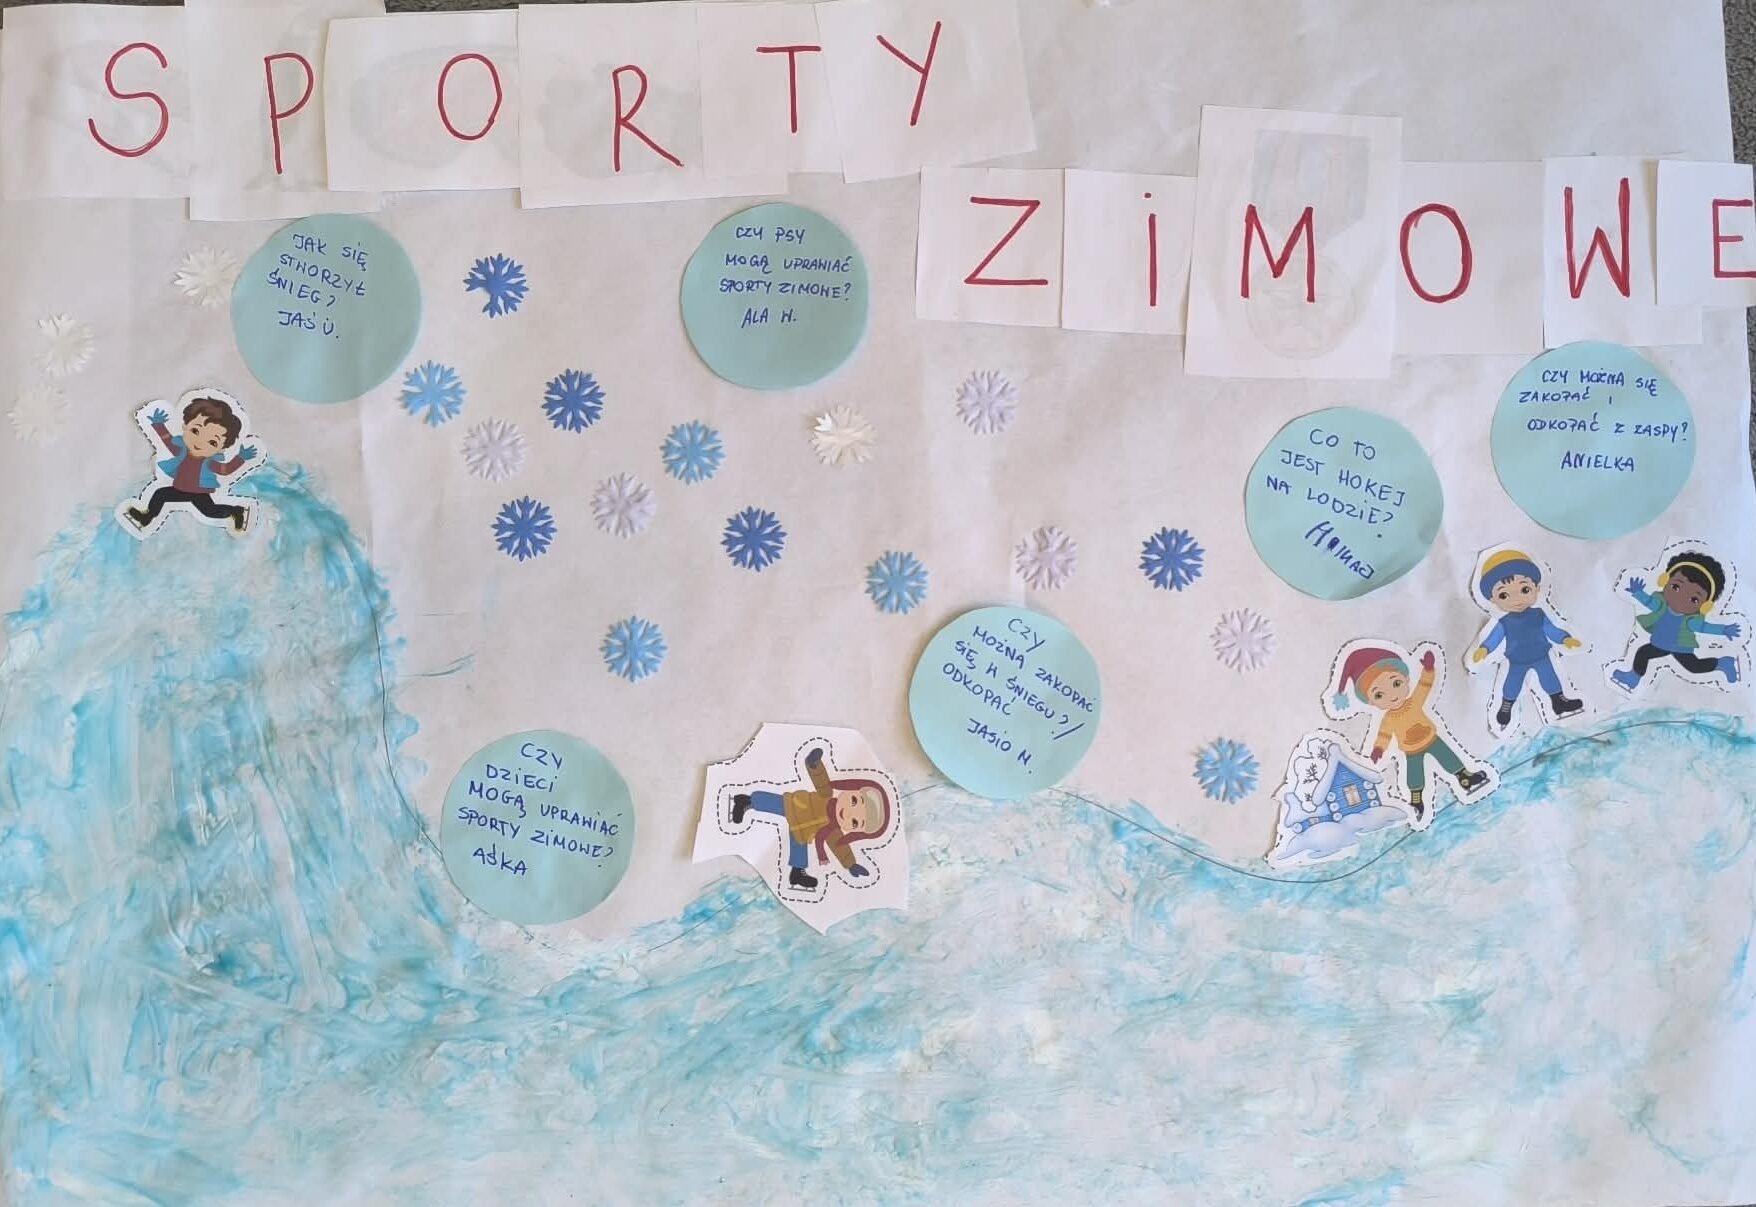 SPORTY
ZiMOWE
JAK SIĘ
STWORZYŁ
ŚNIEG?
JAŚ U.
CZY PSY
MOGĄ UPRAWIAĆ
SPORTY ZIMOWE?
ALA W.
CZY MOŻNA SIĘ
ZAKOPAĆ I
ODKOPAĆ Z ZASPY?
ANIELKA
CO TO
JEST HOKEJ
NA LODZIE?
CZY
MOŻNA ZAKOPAĆ
SIĘ W ŚNIEGU?/
ODKOPAĆ
JASIO N.
CZY
DZIECI
MOGĄ UPRAWIAĆ
SPORTY ZIMOWE?
AŚKA